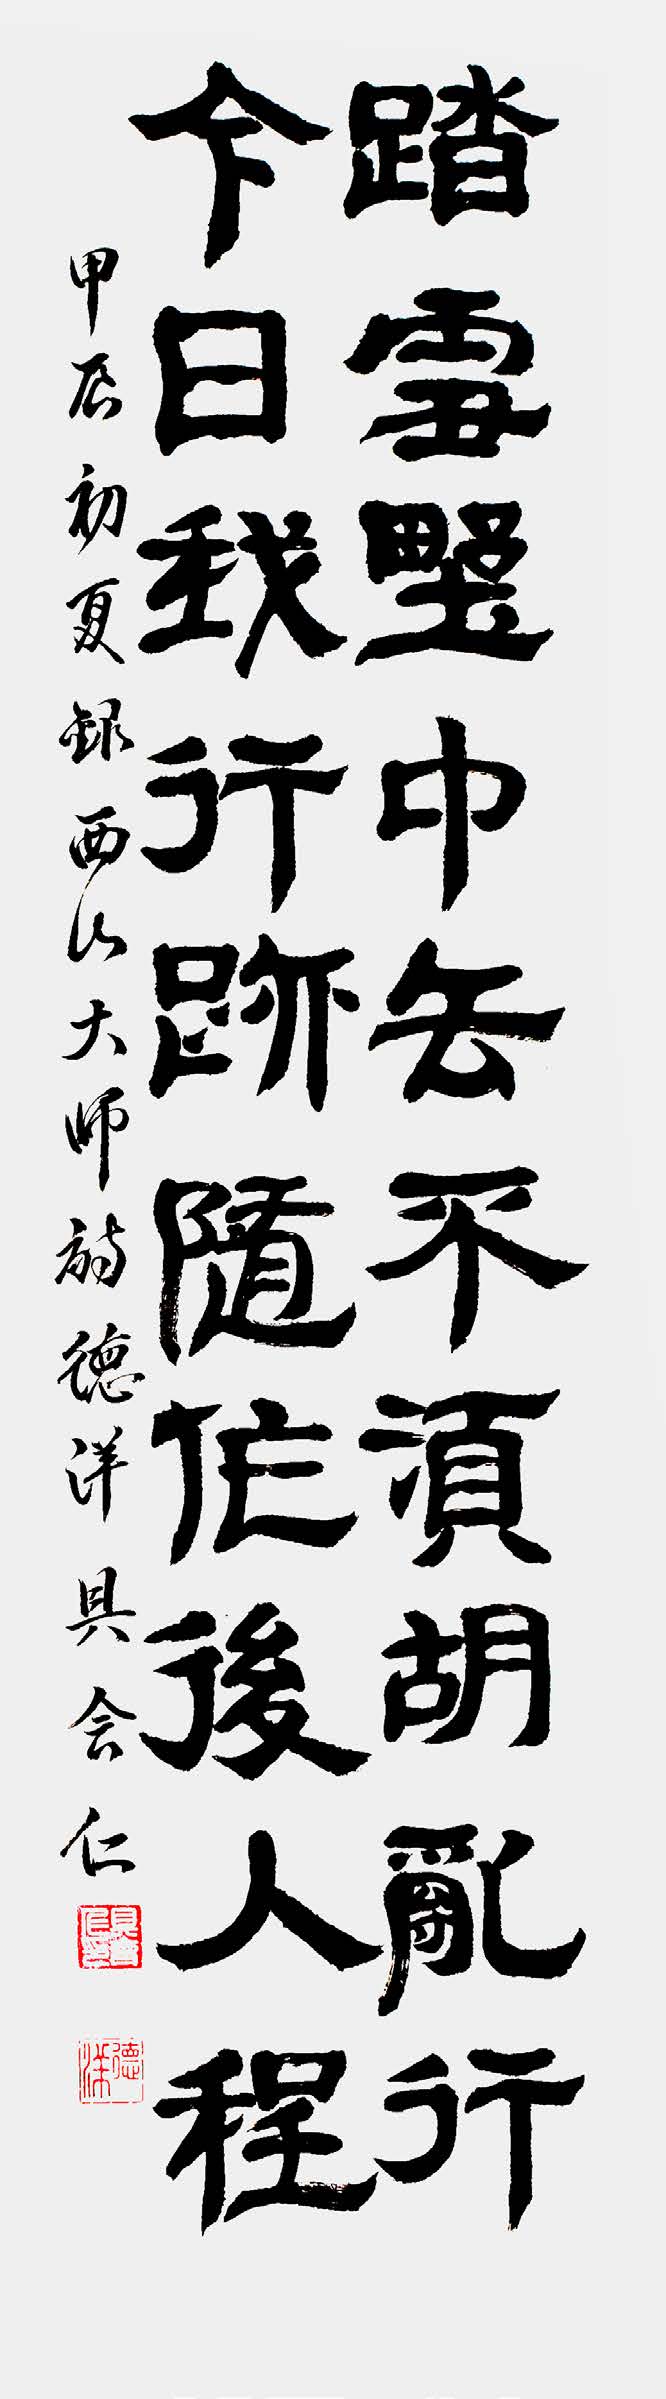 踏雪墅中去不湏胡亂行
今日我行跡隨作後人程
甲辰初夏錄西山大師詩德洋具会仁
德洋